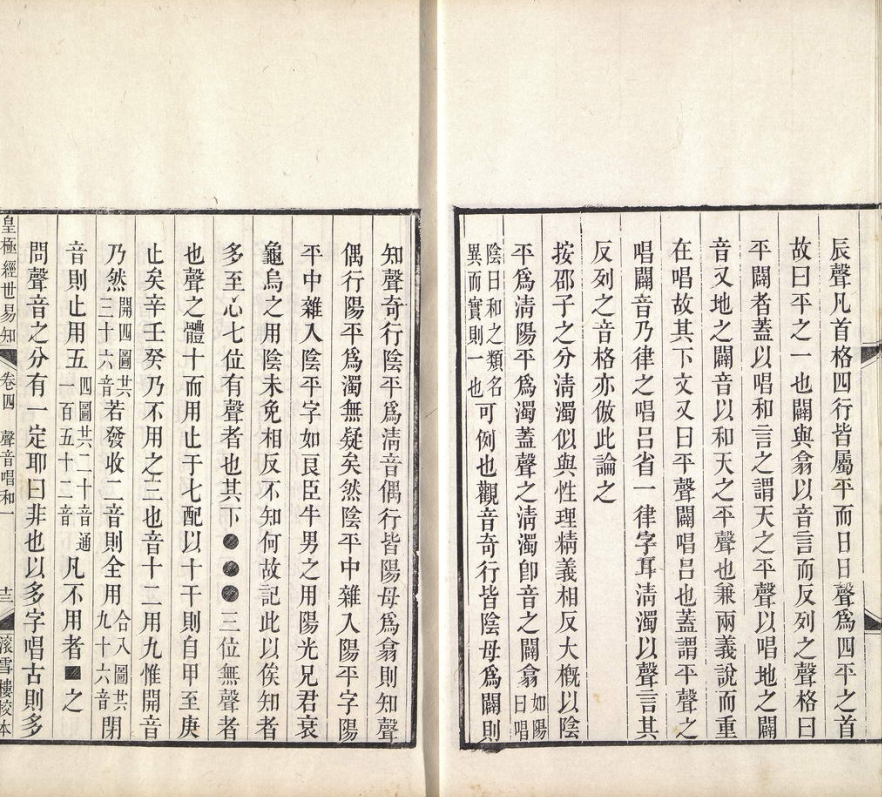 辰聲凡首格四行皆屬平而日日聲爲四平之首
故曰平之一也闢與翕以音言而反列之聲格曰
平闢者蓋以唱和言之謂天之平聲以唱地之闢
音又地之闢音以和天之平聲也兼兩義說而重
在唱故其下文又曰平聲闢唱呂也蓋謂平聲之
唱闢音乃律之唱呂省一律字耳淸濁以聲言其
反列之音格亦倣此論之
按邵子之分淸濁似與性理精義相反大槪以陰
平爲淸陽平爲濁蓋聲之淸濁卽音之闢翕如陽日唱
陰日和之類名異而實則一也可例也觀音奇行皆陰母爲闢則
知聲奇行陰平爲淸音偶行皆陽母爲翕則知聲
偶行陽平爲濁無疑矣然陰平中雜入陽平字陽
平中雜入陰平字如良臣牛男之用陽光兄君衰
龜烏之用陰未免相反不知何故記此以俟知者
多至心七位有聲者也其下●●●三位無聲者
也聲之體十而用止于七配以十干則自甲至庚
止矣辛壬癸乃不用之三也音十二用九惟開音
乃然開四圖共三十六音若發收二音則全用合八圖共九十六音閉
音則止用五四圖共二十音通一百五十二音凡不用者■之
問聲音之分有一定耶曰非也以多字唱古則多
皇極經世易知 卷四 聲音唱和一 十三 滚雪樓校本